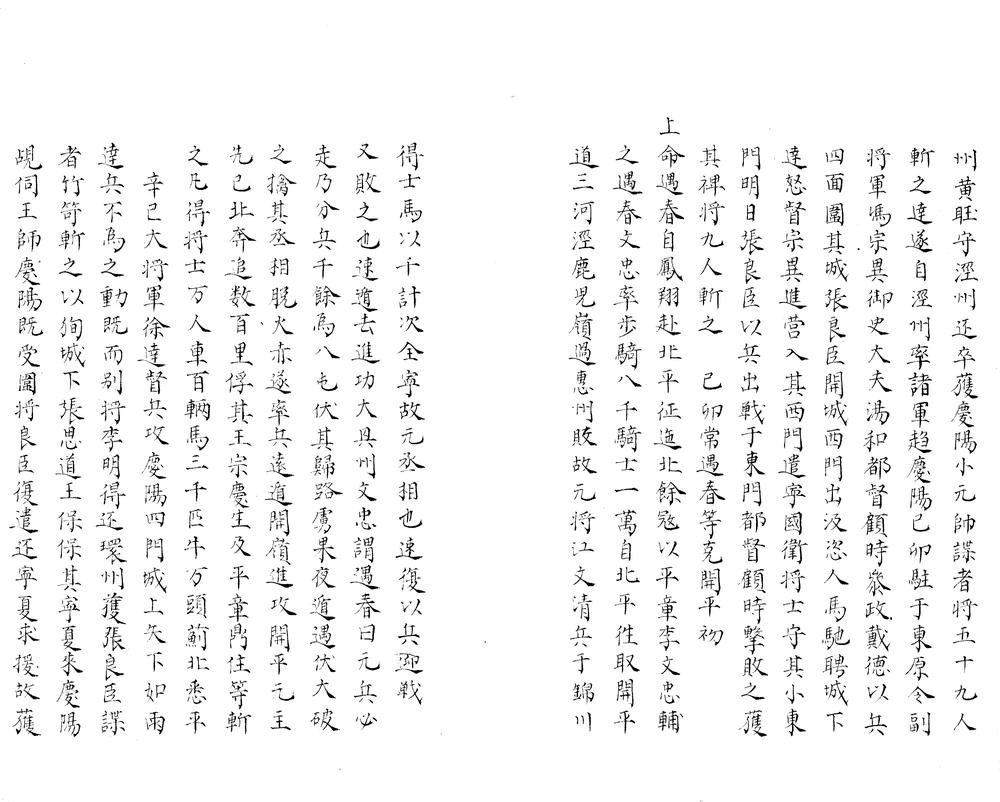 州黄旺守涇州还卒獲慶陽小元帥諜者将五十九人
斬之達遂自涇州率諸軍趋慶陽已卯駐于東原令副
将軍馮宗異御史大夫湯和都督顧時叅政戴德以兵
四面圍其城張良臣開城西門出汲恣人馬馳聘城下
達怒督宗異進营入其西門遣寧國衛将士守其小東
門明日張良臣以兵出戦于東門都督顧時擊敗之獲
其裨将九人斬之　己卯常遇春等克開平初
上命遇春自鳳翔赴北平征迤北餘寇以平章李文忠輔
之遇春文忠率步騎八千騎士一萬自北平徃取開平
道三河涇鹿児嶺過惠州敗故元将江文清兵于錦川
得士馬以千計次全寧故元丞相也速復以兵迎戦
又敗之也速遁去進功大具州文忠謂遇春曰元兵必
走乃分兵千餘為八屯伏其歸路虜果夜遁遇伏大破
之擒其丞相脱火赤遂率兵遠遁開嶺進攻開平元主
先已北奔追数百里俘其王宗慶生及平章鼎住等斬
之凡得将士万人車百輌馬三千匹牛万頭薊北悉平
辛已大将軍徐達督兵攻慶陽四門城上矢下如雨
達兵不為之動既而别将李明得还環州獲張良臣諜
者竹笴斬之以狥城下張思道王保保其寧夏来慶陽
覘伺王師慶陽既受圍将良臣復遣还寧夏求援故獲